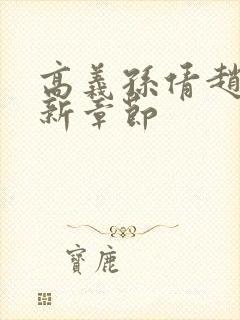 高義孫倩趙
新章節
寶鹿